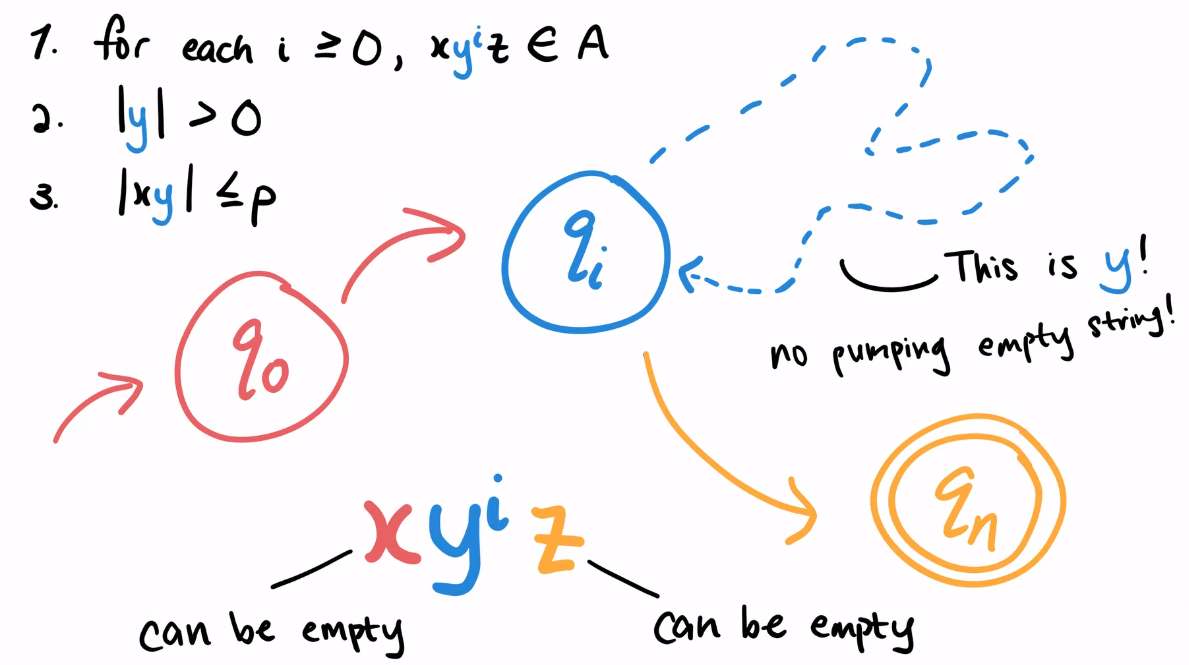 1. for each i ≥ 0, xyⁱz ∈ A
2. |y| > 0
3. |xy| ≤ p
q₀
qᵢ
This is y!
no pumping empty string!
qₙ
xyⁱz
can be empty
can be empty